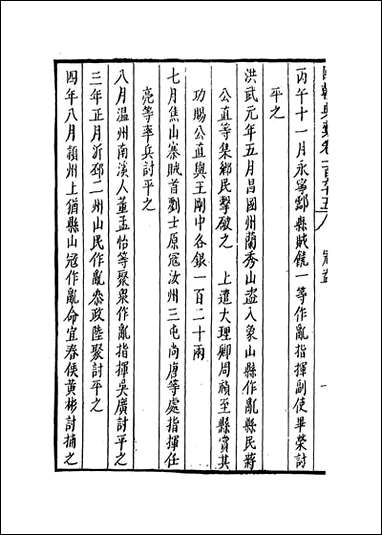 寇盜
丙午十一月永寧鄠縣賊饒一等作亂指揮副使畢榮討
平之
洪武元年五月昌國州蘭秀山盜入象山縣作亂縣民蔣
公直等集鄉民擊破之　上遣大理卿周禎至縣賞其
功賜公直與王剛中各銀一百二十兩
七月焦山寨賊首劉士原寇汝州三屯尚唐等處指揮任
亮等率兵討平之
八月溫州南溪人董孟怡等聚衆作亂指揮吳廣討平之
三年正月沂邳二州山民作亂叅政陸聚討平之
四年八月贛州上猶縣山寇作亂命宜春侯黃彬討捕之